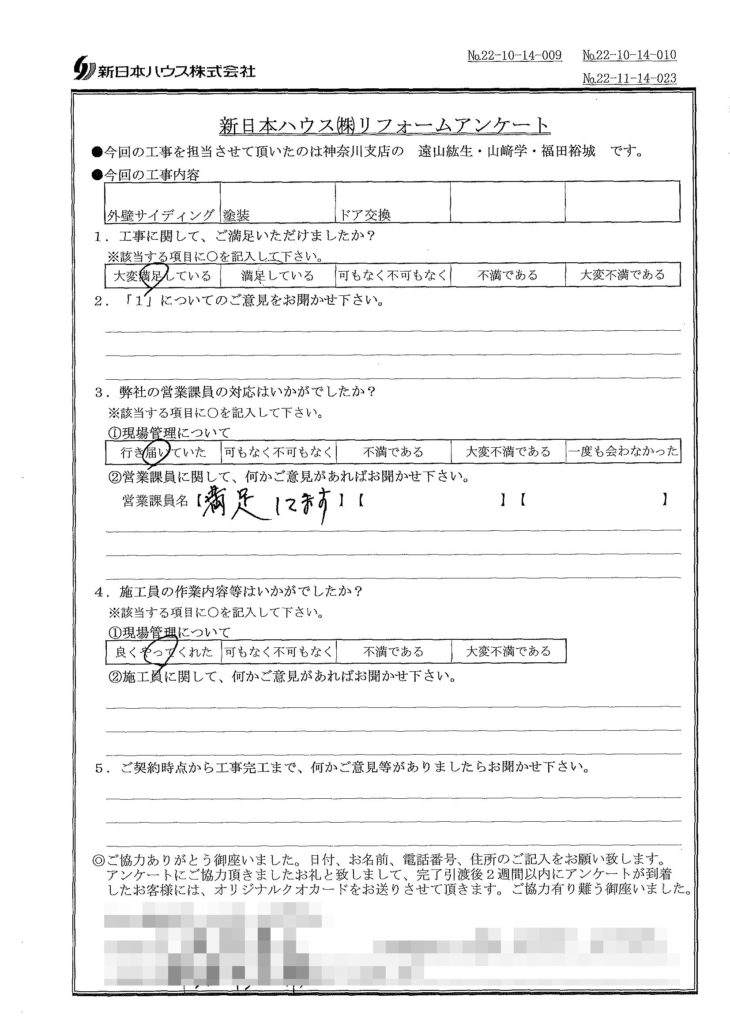 新日本ハウス株式会社
№22-10-14-009 №22-10-14-010
№22-11-14-023
新日本ハウス㈱リフォームアンケート
●今回の工事を担当させて頂いたのは神奈川支店の 遠山紘生・山﨑学・福田裕城 です。
●今回の工事内容
外壁サイディング 塗装 ドア交換
1．工事に関して、ご満足いただけましたか？
※該当する項目に○を記入して下さい。
大変満足している 満足している 可もなく不可もなく 不満である 大変不満である
2．「1」についてのご意見をお聞かせ下さい。
3．弊社の営業課員の対応はいかがでしたか？
※該当する項目に○を記入して下さい。
①現場管理について
行き届いていた 可もなく不可もなく 不満である 大変不満である 一度も会わなかった
②営業課員に関して、何かご意見があればお聞かせ下さい。
営業課員名【満足してます】【 】【 】
4．施工員の作業内容等はいかがでしたか？
※該当する項目に○を記入して下さい。
①現場管理について
良くやってくれた 可もなく不可もなく 不満である 大変不満である
②施工員に関して、何かご意見があればお聞かせ下さい。
5．ご契約時点から工事完工まで、何かご意見等がありましたらお聞かせ下さい。
◎ご協力ありがとう御座いました。日付、お名前、電話番号、住所のご記入をお願い致します。
アンケートにご協力頂きましたお礼と致しまして、完了引渡後2週間以内にアンケートが到着
したお客様には、オリジナルクオカードをお送りさせて頂きます。ご協力有り難う御座いました。